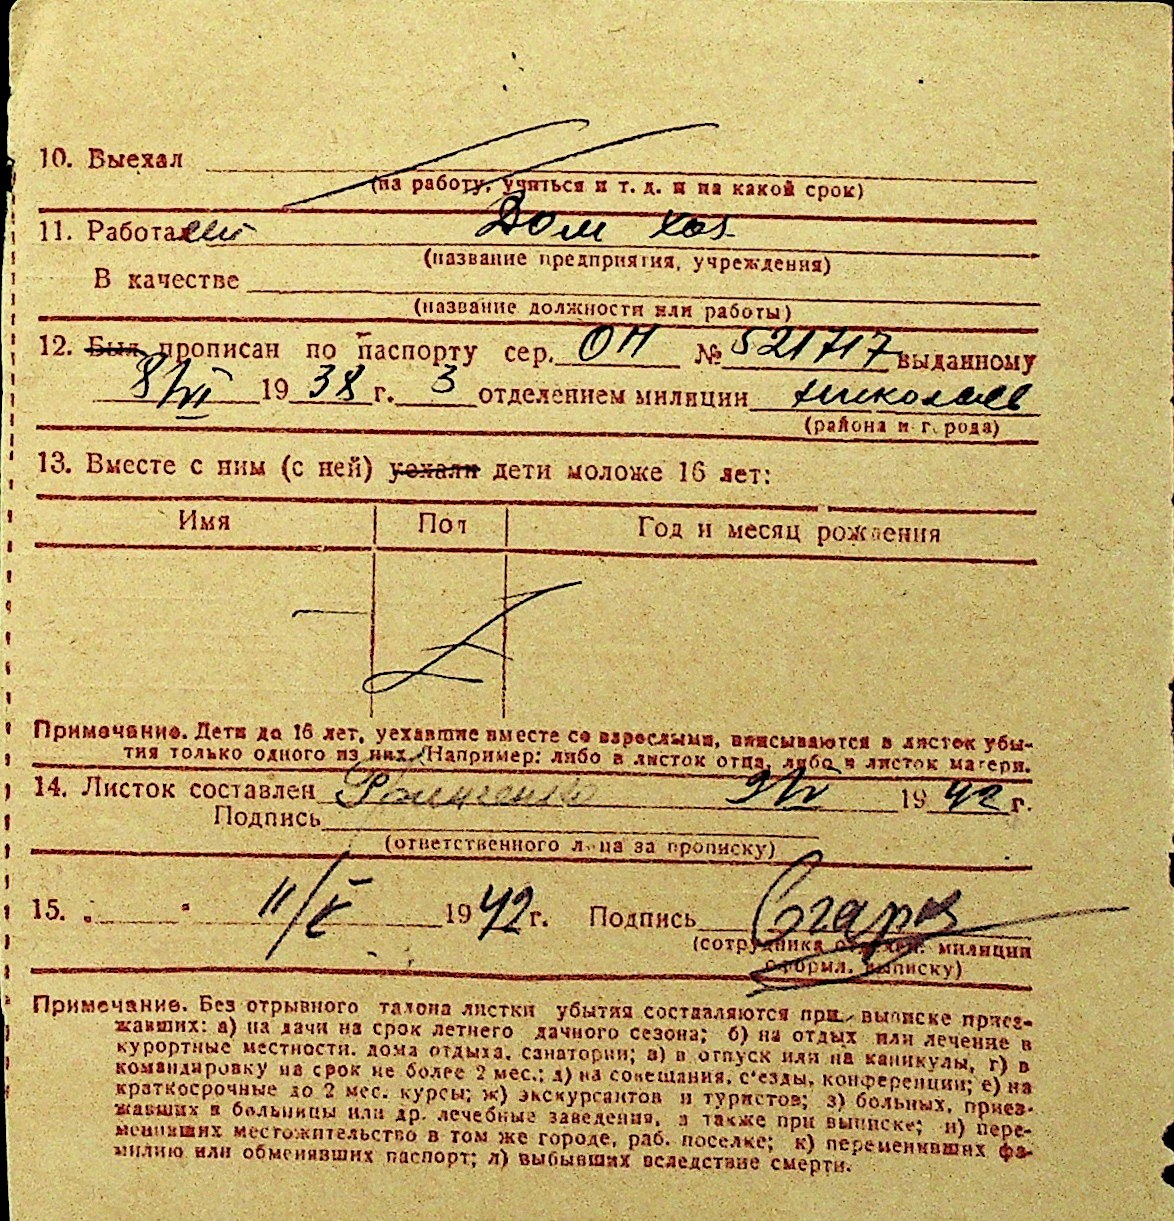 10. Выехал
(на работу, учиться и т. д. и на какой срок)
11. Работает Дом хоз
(название предприятия, учреждения)
В качестве
(название должности или работы)
12. Был прописан по паспорту сер. ОН № 521717 выданному
8/VI 1938 г. 3 отделением милиции Николаев
(района и города)
13. Вместе с ним (с ней) уехали дети моложе 16 лет:
Имя Пол Год и месяц рождения
Примечание. Дети до 16 лет, уехавшие вместе со взрослыми, вписываются в листок убы-
тия только одного из них. (Например: либо в листок отца, либо в листок матери.
14. Листок составлен 1942 г.
Подпись
(ответственного лица за прописку)
15. „ " 11/V 1942 г. Подпись
(сотрудника отделен. милиции
оформл. выписку)
Примечание. Без отрывного талона листки убытия составляются при выписке приез-
жавших: а) на дачи на срок летнего дачного сезона; б) на отдых или лечение в
курортные местности, дома отдыха, санатории; в) в отпуск или на каникулы, г) в
командировку на срок не более 2 мес.; д) на совещания, с'езды, конференции; е) на
краткосрочные до 2 мес. курсы; ж) экскурсантов и туристов; з) больных, приез-
жавших в больницы или др. лечебные заведения, а также при выписке; и) пере-
менивших местожительство в том же городе, раб. поселке; к) переменивших фа-
милию или обменявших паспорт; л) выбывших вследствие смерти.